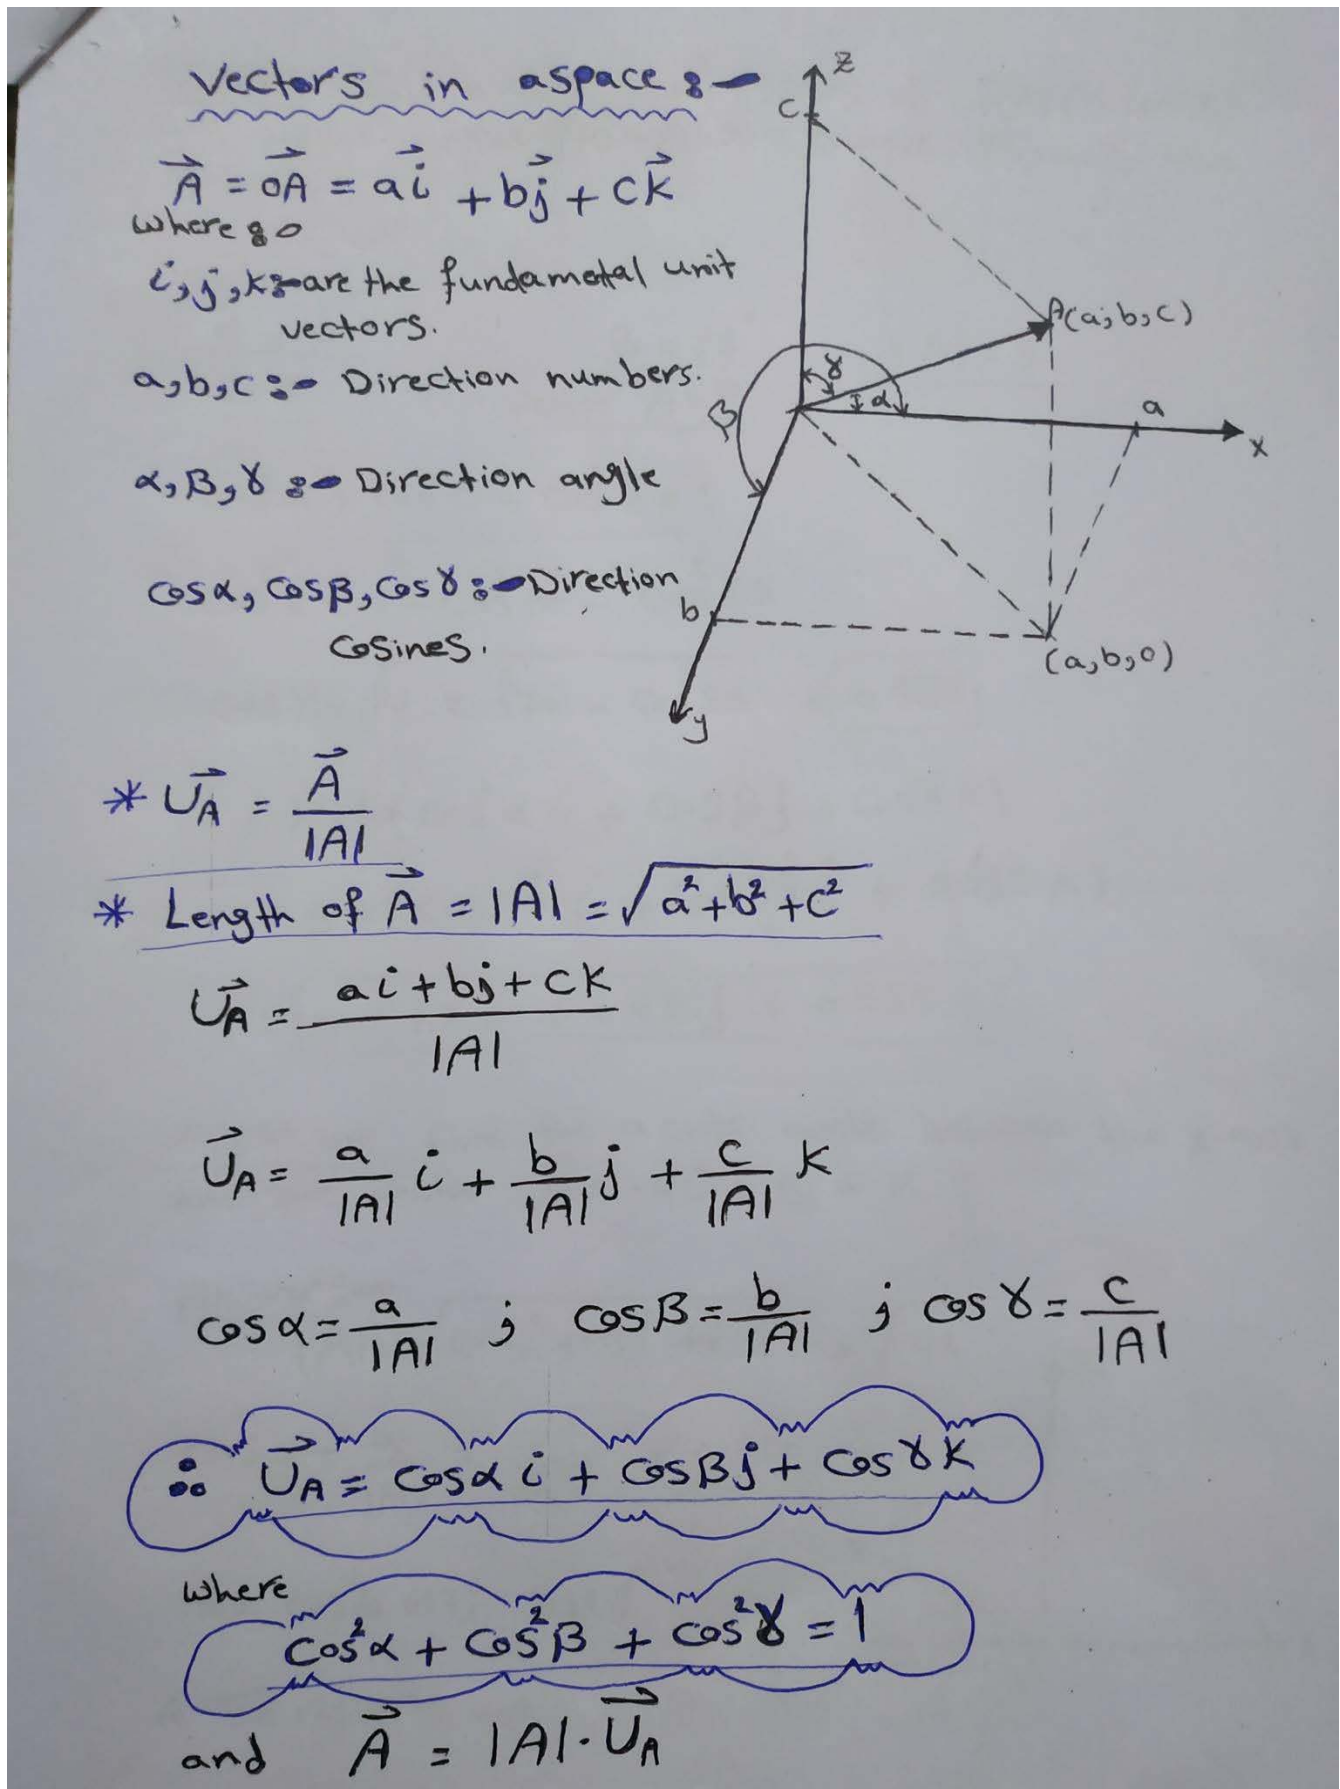 Vectors in aspace :-
A⃗ = oA⃗ = ai⃗ + bj⃗ + ck⃗
where :-
i, j, k :- are the fundametal unit
vectors.
a, b, c :- Direction numbers.
α, β, γ :- Direction angle
cosα, cosβ, cosγ :- Direction
cosines.
z
c
A(a, b, c)
γ
α
β
a
x
b
(a, b, 0)
y
* U⃗_A = A⃗ / |A|
* Length of A⃗ = |A| = √(a² + b² + c²)
U⃗_A = (ai + bj + ck) / |A|
U⃗_A = a/|A| i + b/|A| j + c/|A| k
cosα = a/|A| ; cosβ = b/|A| ; cosγ = c/|A|
∴ U⃗_A = cosα i + cosβ j + cosγ k
where
cos²α + cos²β + cos²γ = 1
and A⃗ = |A| · U⃗_A